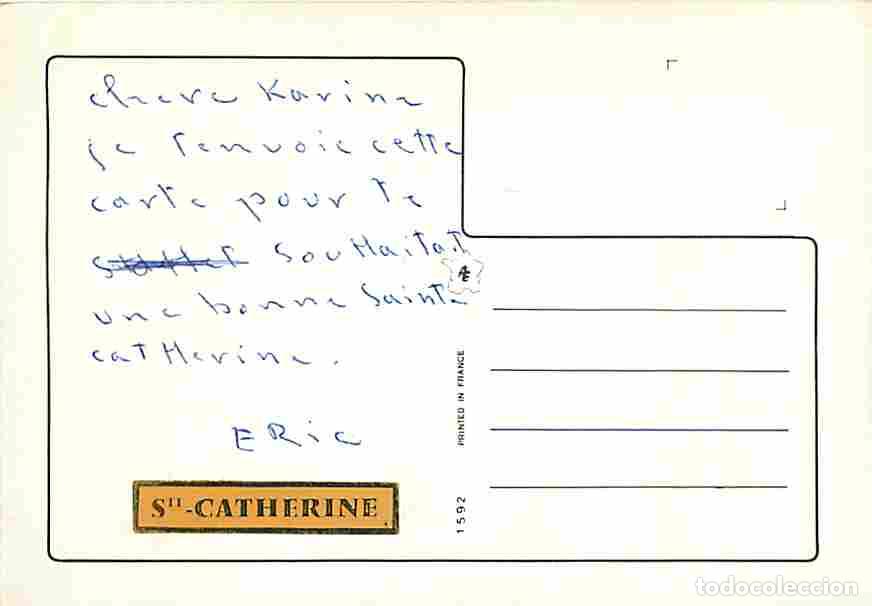 chere Karine
je t'envoie cette
carte pour te
souHaitait
une bonne Sainte
catHerine.
ERic
STE-CATHERINE
PRINTED IN FRANCE
1592
todocoleccion